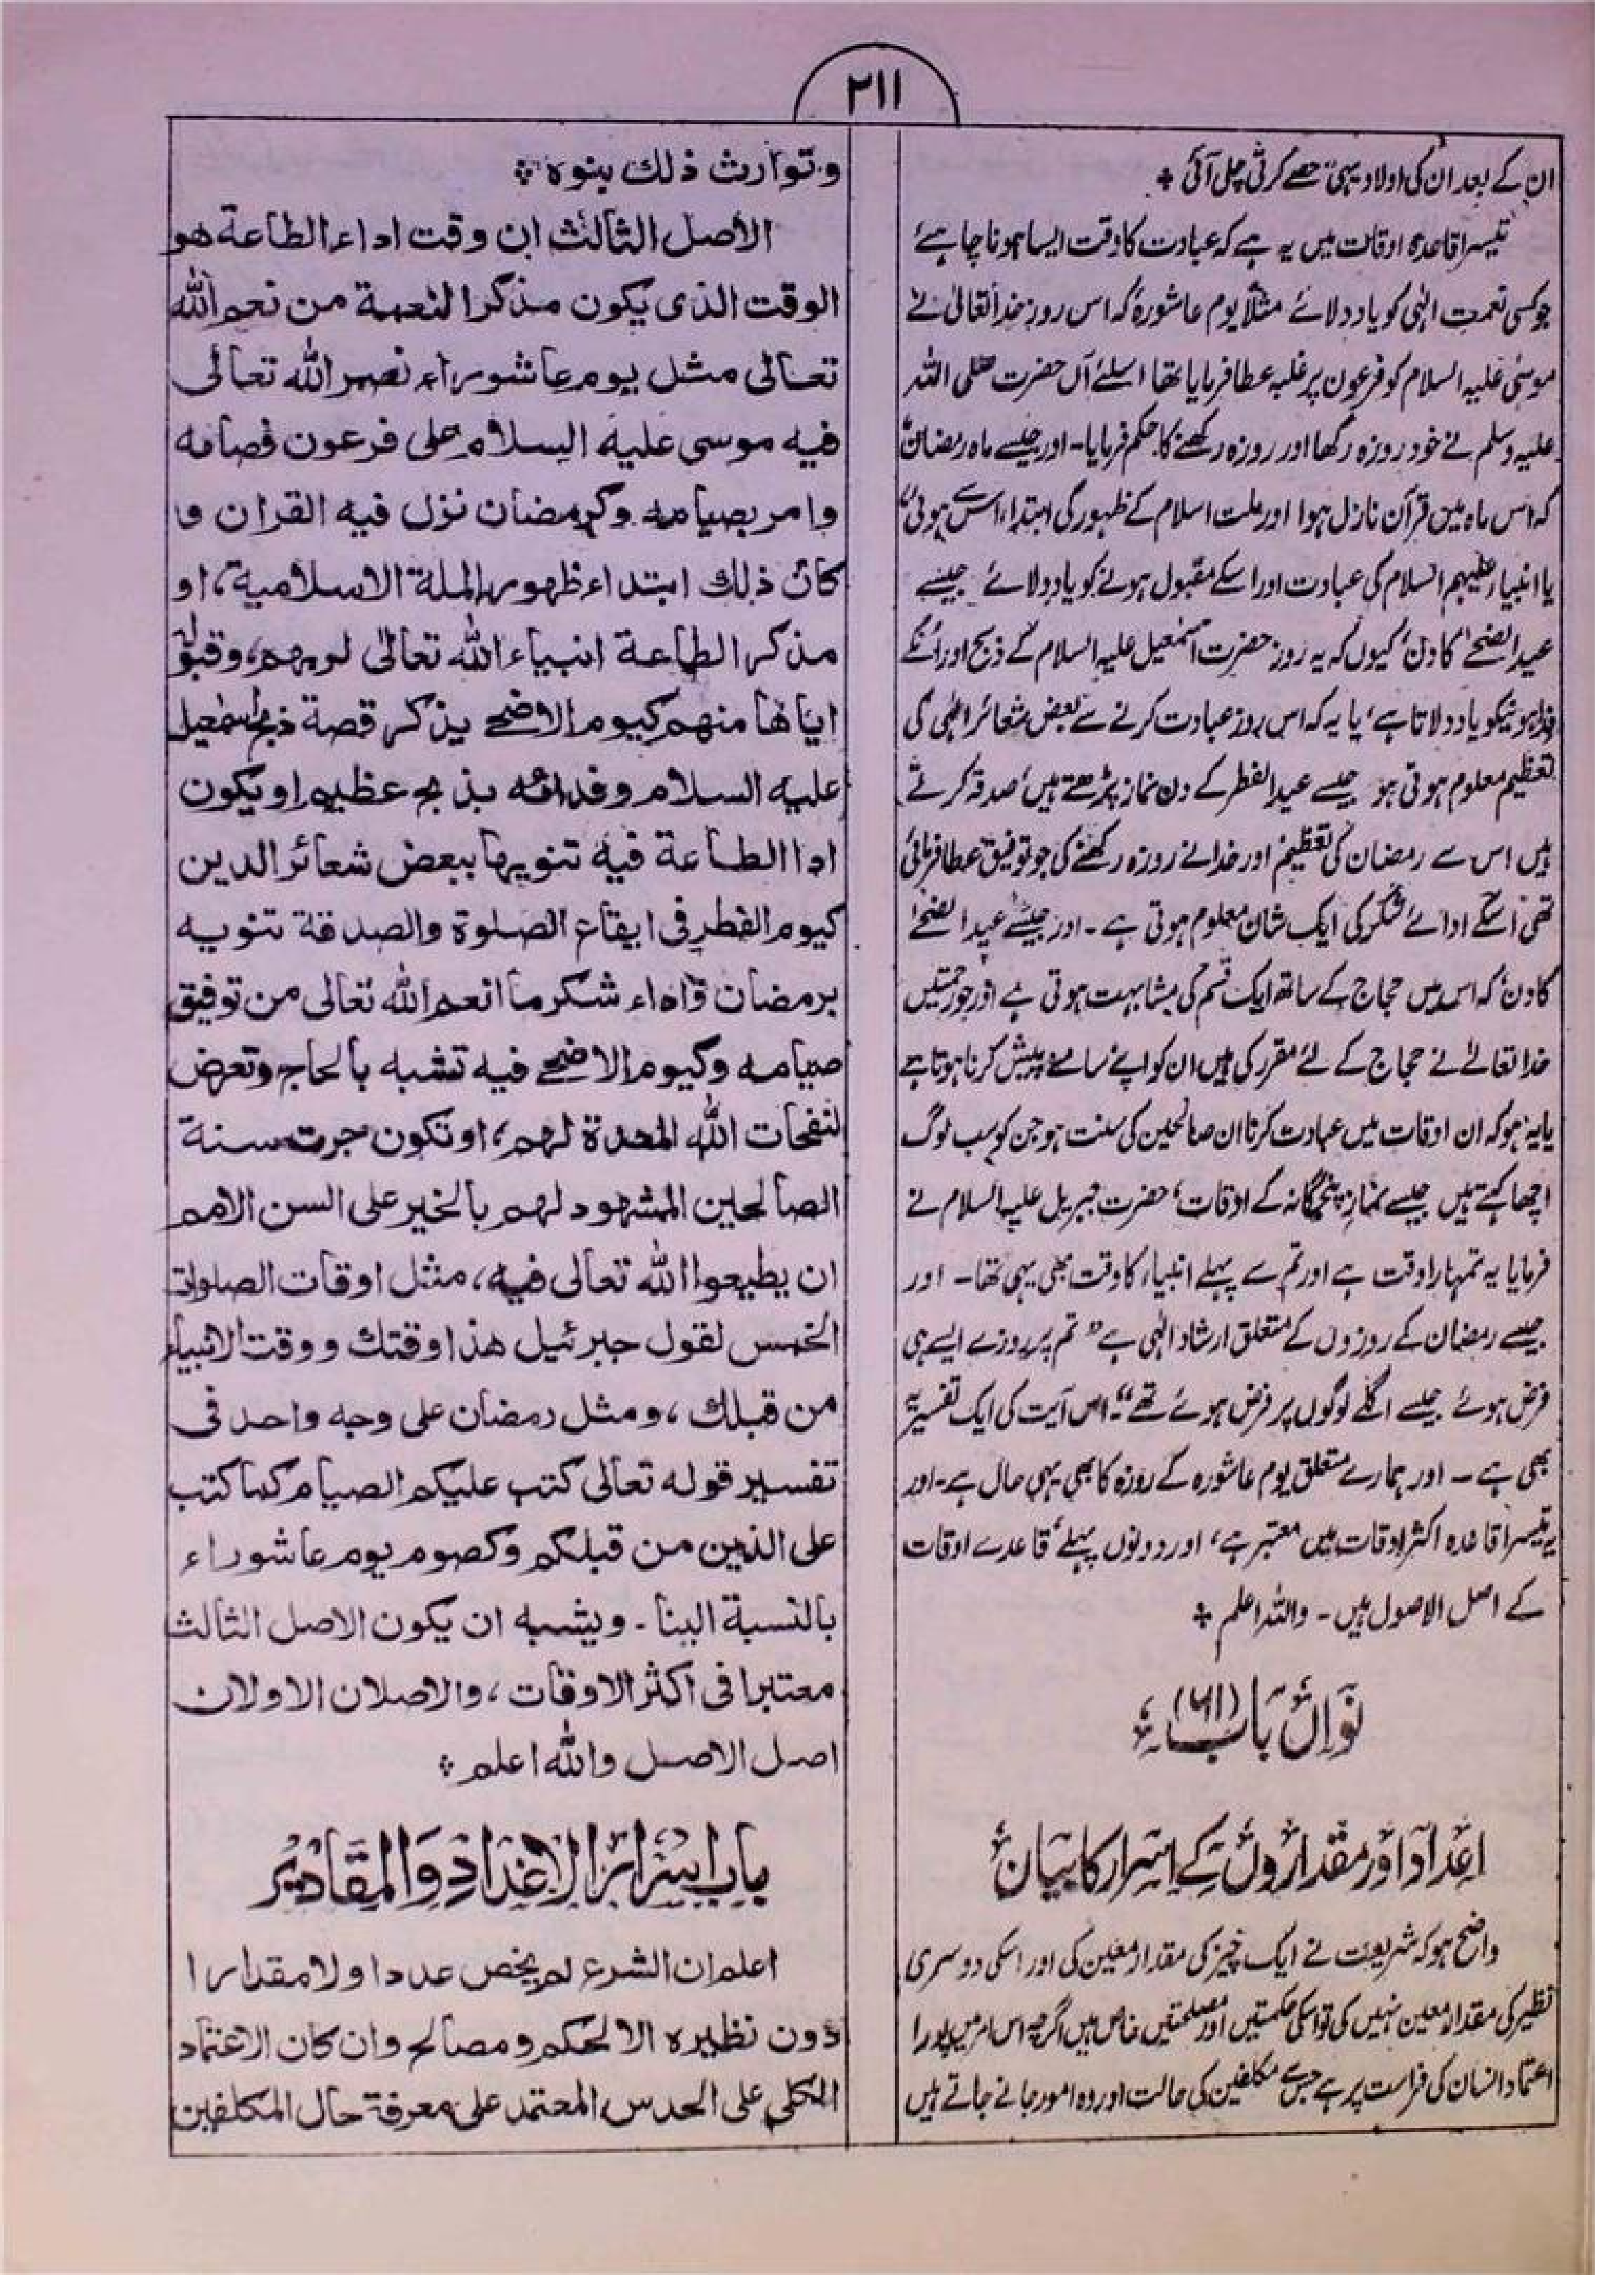 ۲۱۱
ان کے بعد ان کی اولاد یہی حصے کرتی چلی آئی ٭
تیسرا قاعدہ اوقات میں یہ ہے کہ عبادت کا وقت ایسا ہونا چاہئے
جو کسی نعمت الٰہی کو یاد دلائے مثلاً یوم عاشورہ کہ اس روز خدا تعالیٰ نے
موسیٰ علیہ السلام کو فرعون پر غلبہ عطا فرمایا تھا اسلئے آں حضرت صلی اللہ
علیہ وسلم نے خود روزہ رکھا اور روزہ رکھنے کا حکم فرمایا ۔ اور جیسے ماہ رمضان
کہ اس ماہ میں قرآن نازل ہوا اور ملت اسلام کے ظہور کی ابتداء اس سے ہوئی
یا انبیاء علیہم السلام کی عبادت اور اسکے مقبول ہونے کو یاد دلائے جیسے
عید الضحیٰ کا دن، کیوں کہ یہ روز حضرت اسمٰعیل علیہ السلام کے ذبح اور انکے
فدا ہونیکو یاد دلاتا ہے، یا یہ کہ اس روز عبادت کرنے سے بعض شعائر الٰہی کی
تعظیم معلوم ہوتی ہو جیسے عید الفطر کے دن نماز پڑھتے ہیں، صدقہ کرتے
ہیں اس سے رمضان کی تعظیم اور خدا نے روزہ رکھنے کی جو توفیق عطا فرمائی
تھی اسکے ادائے شکر کی ایک شان معلوم ہوتی ہے ۔ اور جیسے عید الضحیٰ
کا دن کہ اس میں حجاج کے ساتھ ایک قسم کی مشابہت ہوتی ہے اور جو رحمتیں
خدا تعالیٰ نے حجاج کے لئے مقرر کی ہیں ان کو اپنے سامنے پیش کرنا ہوتا ہے
یا یہ ہو کہ ان اوقات میں عبادت کرنا ان صالحین کی سنت ہو جن کو سب لوگ
اچھا کہتے ہیں جیسے نماز پنجگانہ کے اوقات، حضرت جبریل علیہ السلام نے
فرمایا یہ تمہارا وقت ہے اور تم سے پہلے انبیاء کا وقت بھی یہی تھا ۔ اور
جیسے رمضان کے روزوں کے متعلق ارشاد الٰہی ہے "تم پر روزے ایسے ہی
فرض ہوئے جیسے اگلے لوگوں پر فرض ہوئے تھے"۔ اس آیت کی ایک تفسیر یہ
بھی ہے ۔ اور ہمارے متعلق یوم عاشورہ کے روزہ کا بھی یہی حال ہے ۔ اور
یہ تیسرا قاعدہ اکثر اوقات میں معتبر ہے، اور دونوں پہلے قاعدے اوقات
کے اصل الاصول ہیں ۔ واللہ اعلم ٭
نواں باب (۶۱)
اعداد اور مقداروں کے اسرار کا بیان
واضح ہو کہ شریعت نے ایک چیز کی مقدار معین کی اور اسکی دوسری
نظیر کی مقدار معین نہیں کی تو اسکی حکمتیں اور مصلحتیں خاص ہیں اگرچہ اس امر میں پورا
اعتماد انسان کی فراست پر ہے جس سے مکلفین کی حالت اور وہ امور جانے جاتے ہیں
وتوارث ذلك بنوه ؞
الأصل الثالث ان وقت اداء الطاعة هو
الوقت الذی یکون مذکرا لنعمة من نعم الله
تعالی مثل یوم عاشوراء نصر الله تعالی
فیه موسی علیه السلام علی فرعون فصامه
وامر بصیامه وکرمضان نزل فیه القران و
کان ذلك ابتداء ظهور الملة الاسلامیة، او
مذکرا لطاعة انبیاء الله تعالی لربهم، وقبوله
ایاها منهم کیوم الاضحی یذکر قصة ذبح اسمٰعیل
علیه السلام وفدائه بذبح عظیم او یکون
اداا لطاعة فیه تنویها ببعض شعائر الدین
کیوم الفطر فی ایقاع الصلوة والصدقة تنویه
برمضان واداء شکر ما انعم الله تعالی من توفیق
صیامه وکیوم الاضحی فیه تشبه بالحاج وتعرض
لنفحات الله المعدة لهم، او تکون جرت سنة
الصالحین المشهود لهم بالخیر علی السن الامم
ان یطیعوا الله تعالی فیه، مثل اوقات الصلوات
الخمس لقول جبرئیل هذا وقتك ووقت الانبیاء
من قبلك، ومثل رمضان علی وجه واحد فی
تفسیر قوله تعالی کتب علیکم الصیام کما کتب
علی الذین من قبلکم وکصوم یوم عاشوراء
بالنسبة الینا ۔ ویشبه ان یکون الاصل الثالث
معتبرا فی اکثر الاوقات، والاصلان الاولان
اصل الاصل والله اعلم ؞
باب اسرار الاعداد والمقادیر
اعلم ان الشرع لم یخص عددا ولا مقدارا
دون نظیره الا لحکم ومصالح وان کان الاعتماد
الکلی علی الحدس المعتمد علی معرفة حال المکلفین